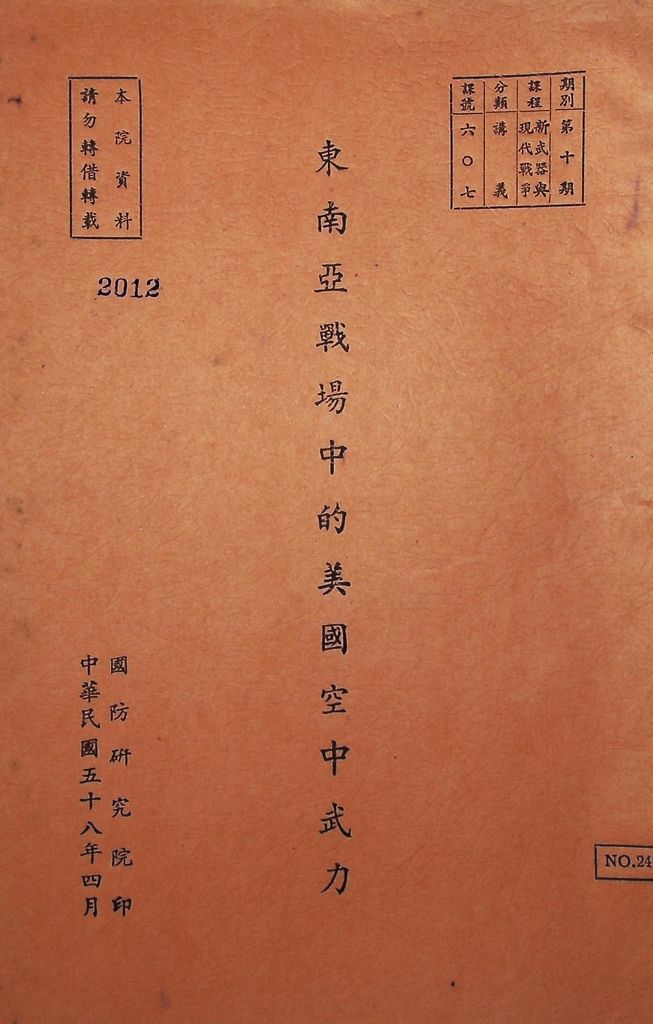 期別 第十期
課程 新武器與
現代戰爭
分類 講義
課號 六〇七
東南亞戰場中的美國空中武力
本院資料
請勿轉借轉載
2012
國防研究院印
中華民國五十八年四月
NO.24